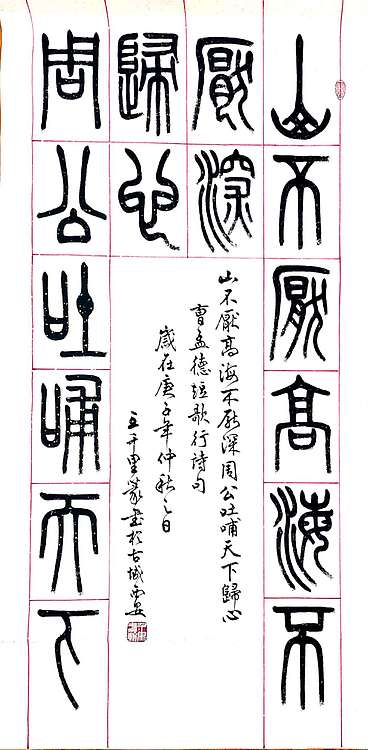 山不厭高海不
厭深
周公吐哺天下
歸心
山不厭高海不厭深周公吐哺天下歸心
曹孟德短歌行詩句
歲在庚子年仲秋之日
王千里篆書於古城西安